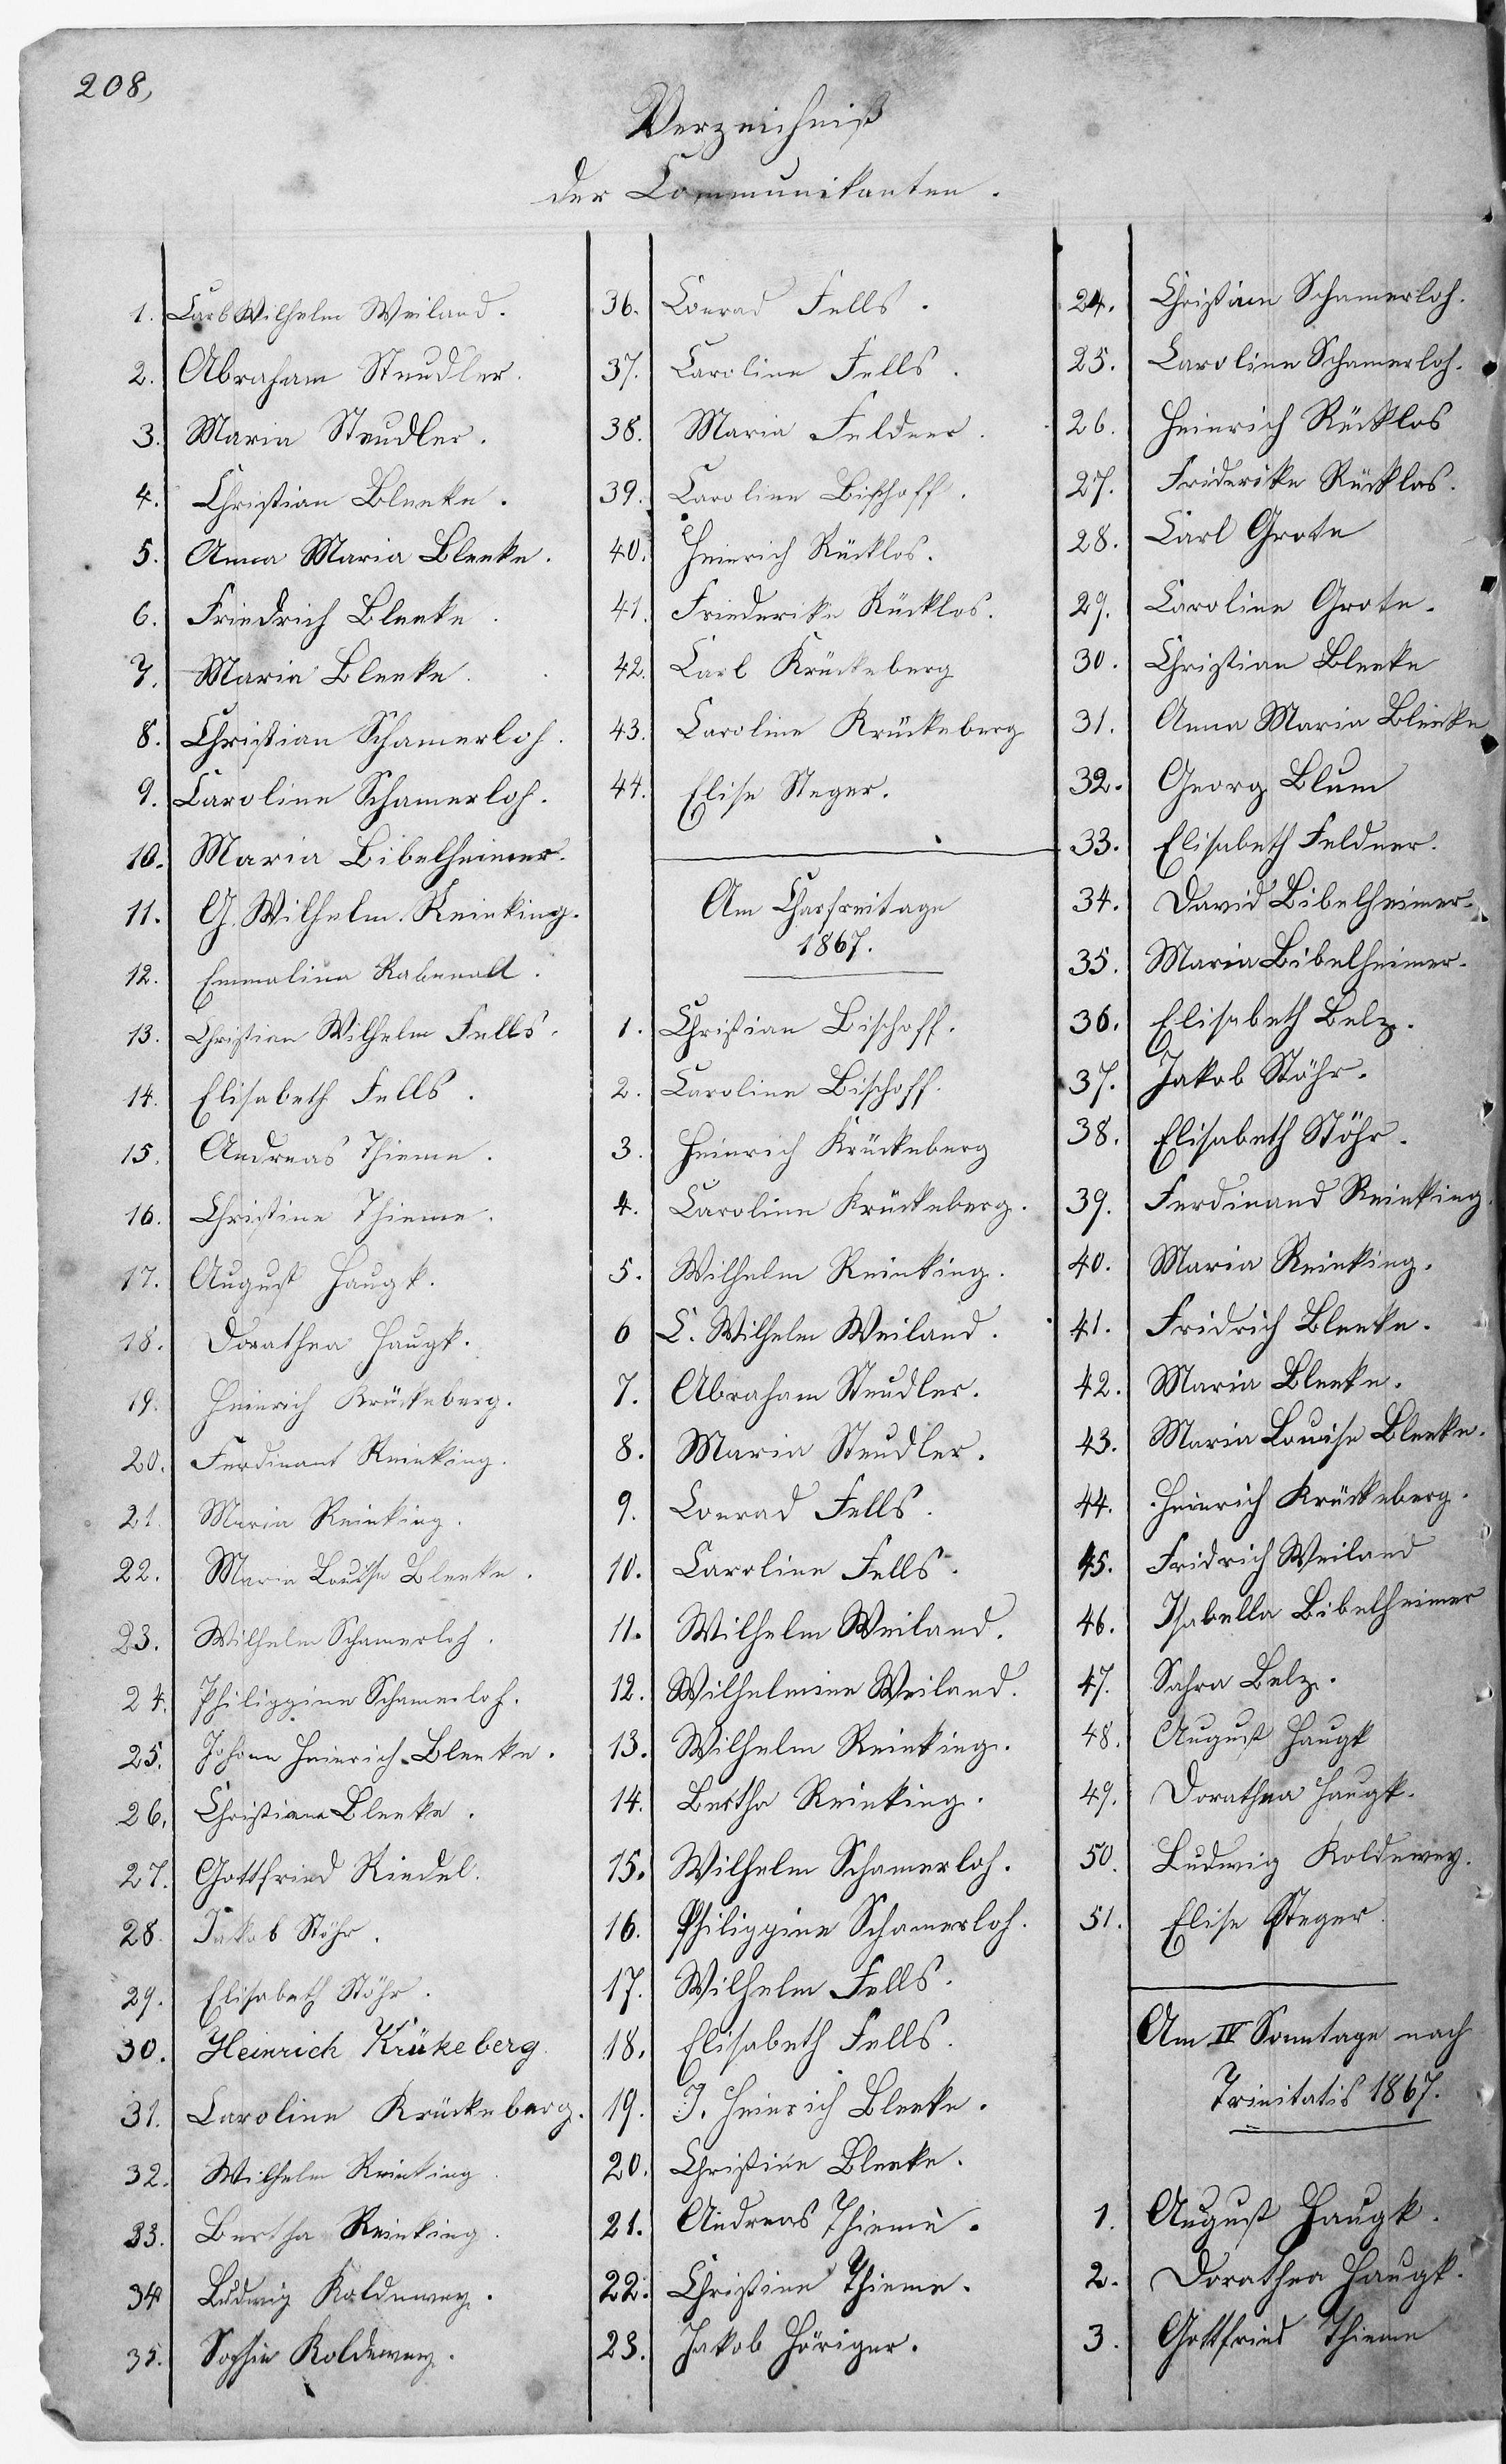 208,
Verzeichniß
der Communikanten.
1. Carl Wilhelm Weiland.
2. Abraham Steudler.
3. Maria Steudler.
4. Christian Bleeke.
5. Anna Maria Bleeke.
6. Friedrich Bleeke.
7. Maria Bleeke.
8. Christian Schamerloh.
9. Caroline Schamerloh.
10. Maria Bibelheimer.
11. G. Wilhelm Reinking.
12. Emmalina Rabenalt.
13. Christian Wilhelm Fells.
14. Elisabeth Fells.
15. Andreas Thieme.
16. Christine Thieme.
17. August Haugk.
18. Dorathea Haugk.
19. Heinrich Krückeberg.
20. Ferdinant Reinking.
21. Maria Reinking.
22. Maria Louise Bleeke.
23. Wilhelm Schamerloh.
24. Philippine Schamerloh.
25. Johann Heinrich Bleeke.
26. Christiana Bleeke.
27. Gottfried Riedel.
28. Jakob Stöhr.
29. Elisabeth Stöhr.
30. Heinrich Krükeberg.
31. Caroline Krückeberg.
32. Wilhelm Reinking
33. Bertha Reinking.
34 Ludwig Koldewey.
35. Sophie Koldewey.
36. Conrad Fells.
37. Caroline Fells.
38. Maria Feldner.
39. Caroline Bischoff.
40. Heinrich Rücklos.
41. Friederike Rücklos.
42. Carl Krückeberg
43. Caroline Krückeberg
44. Elise Steger.
Am Charfreitage
1867.
1. Christian Bischoff.
2. Caroline Bischoff.
3. Heinrich Krückeberg
4. Caroline Krückeberg.
5. Wilhelm Reinking.
6 C. Wilhelm Weiland.
7. Abraham Steudler.
8. Maria Steudler.
9. Conrad Fells.
10. Caroline Fells.
11. Wilhelm Weiland.
12. Wilhelmine Weiland.
13. Wilhelm Reinking.
14. Bertha Reinking.
15. Wilhelm Schamerloh.
16. Philippine Schamerloh.
17. Wilhelm Fells.
18. Elisabeth Fells.
19. J. Heinrich Bleeke.
20. Christine Bleeke.
21. Andreas Thieme.
22. Christine Thieme.
23. Jakob Höriger.
24. Christian Schamerloh.
25. Caroline Schamerloh.
26. Heinrich Rücklos
27. Friderike Rücklos.
28. Carl Grote
29. Caroline Grote.
30. Christian Bleeke
31. Anna Maria Bleeke
32. Georg Blum
33. Elisabeth Feldner.
34. David Bibelheimer.
35. Maria Bibelheimer.
36. Elisabeth Belz.
37. Jakob Stöhr.
38. Elisabeth Stöhr.
39. Ferdinand Reinking.
40. Maria Reinking.
41. Fridrich Bleeke.
42. Maria Bleeke.
43. Maria Louise Bleeke.
44. Heinrich Krückeberg.
45. Fridrich Weiland
46. Isabella Bibelheimer
47. Sahra Belz.
48. August Haugk
49. Dorathea Haugk.
50. Ludwig Koldewey.
51. Elise Steger.
Am IV Sonntage nach
Trinitatis 1867.
1. August Haugk.
2. Dorathea Haugk.
3. Gottfried Thieme